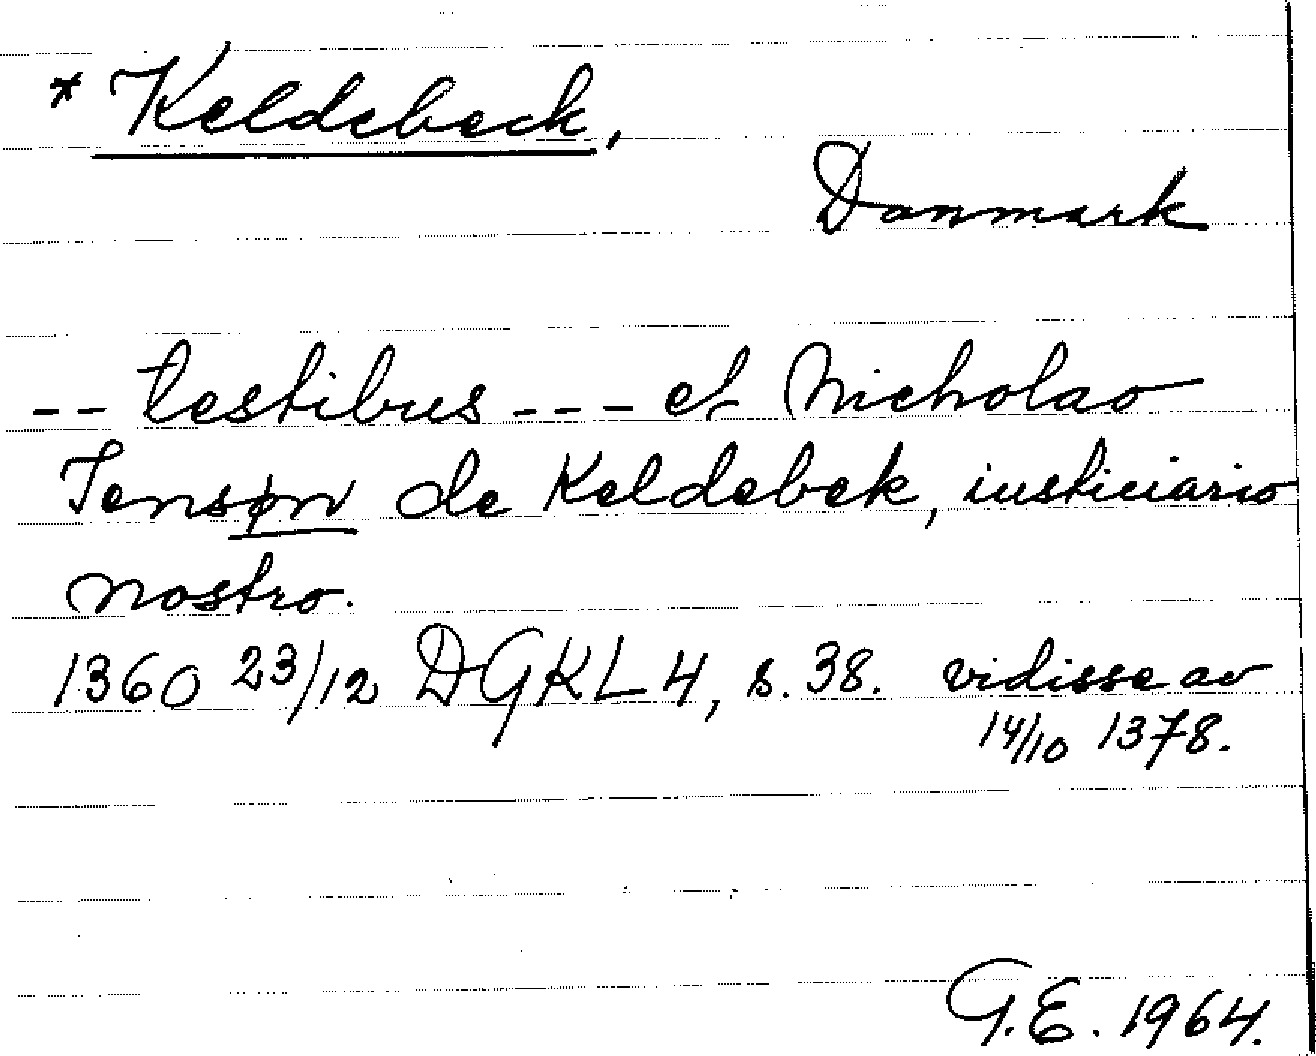 * Keldebeck,
Danmark
-- testibus --- et Nicholao
Jensøn de Keldebek, iusticiario
nostro.
1360 23/12 DGKL 4, s. 38. vidisse av
14/10 1378.
G.E. 1964.